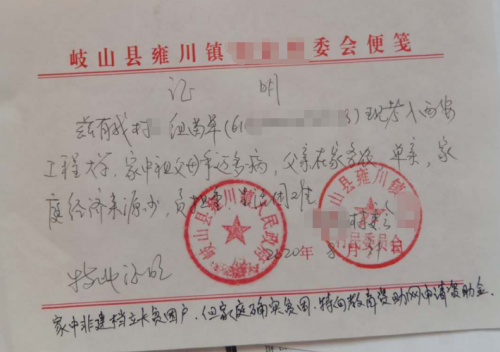 岐山县雍川镇 委会便笺
证 明
兹有我村 组 草(61 3)现考入西安
工程大学,家中祖父母年迈多病,父亲在家务农,单亲,家
庭经济来源少,负担重
岐山县雍川镇人民政府
山县雍川镇
委员会
村委会
2020年 8月
特此证明
家中非建档立卡贫困户,但家庭确实贫困,特向教育资助网申请资助金.